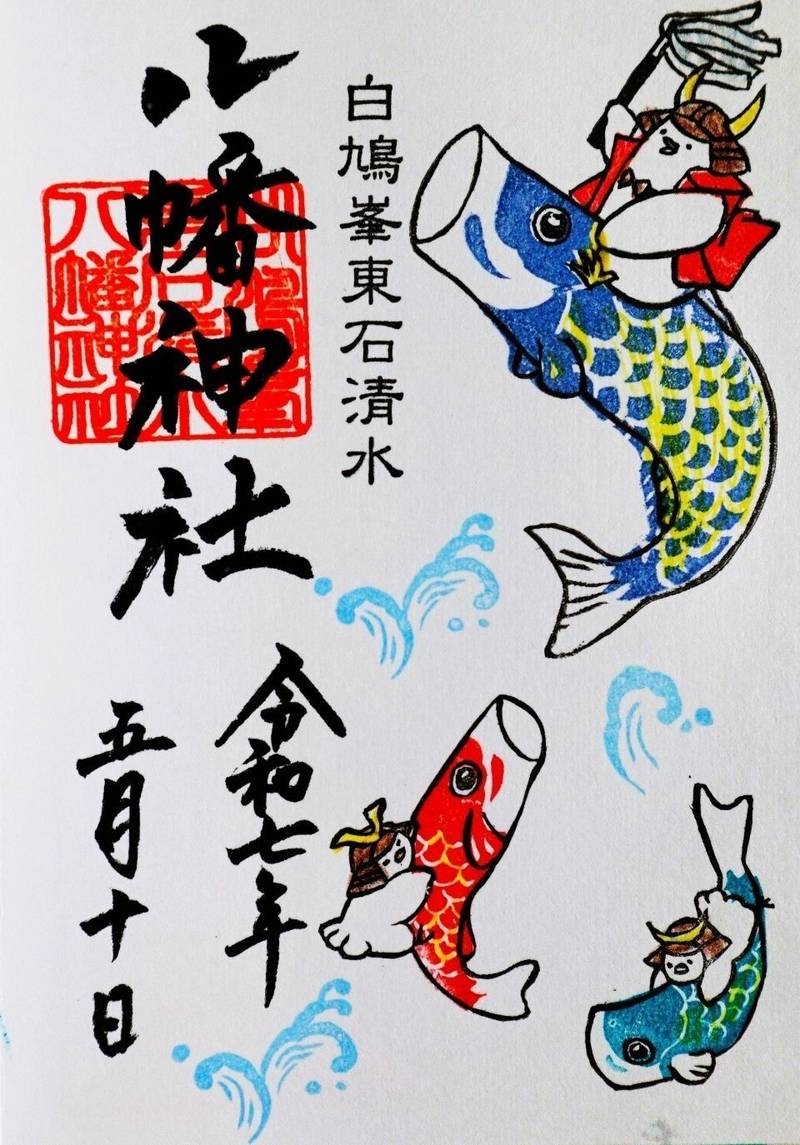 白鳩峯東石清水
八幡神社
八幡神社
令和七年
五月十日